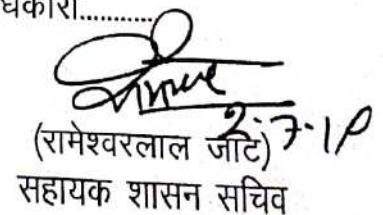 धिकारी...........
2.7.18
(रामेश्वरलाल जाट)
सहायक शासन सचिव